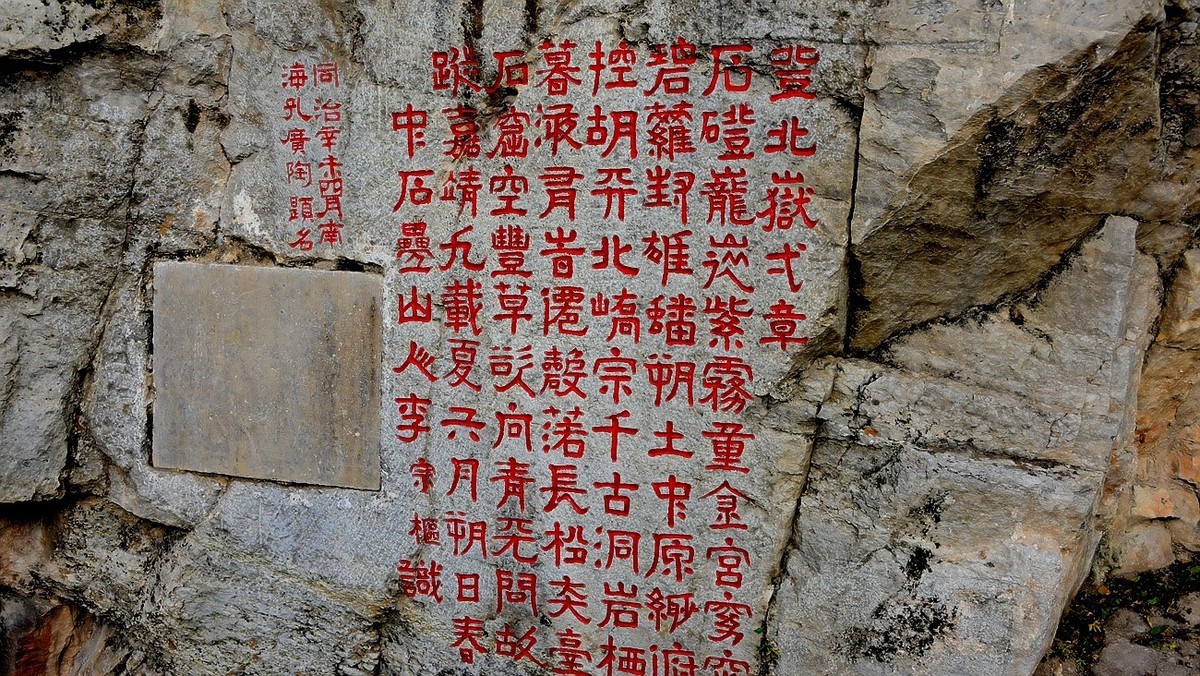 登北嶽弍章
石磴巃嵸紫霧重金宮窈
碧蘿封雄蟠朔土中原緲俯
控胡天北嶠宗千古洞岩栖
暮液昔僊落長松奕臺
石窟空豐草欲向青天問故
蹤嘉靖九載夏六月朔日春
中石疊山人李宗樞識
同治辛未四月南
海孔廣陶題名